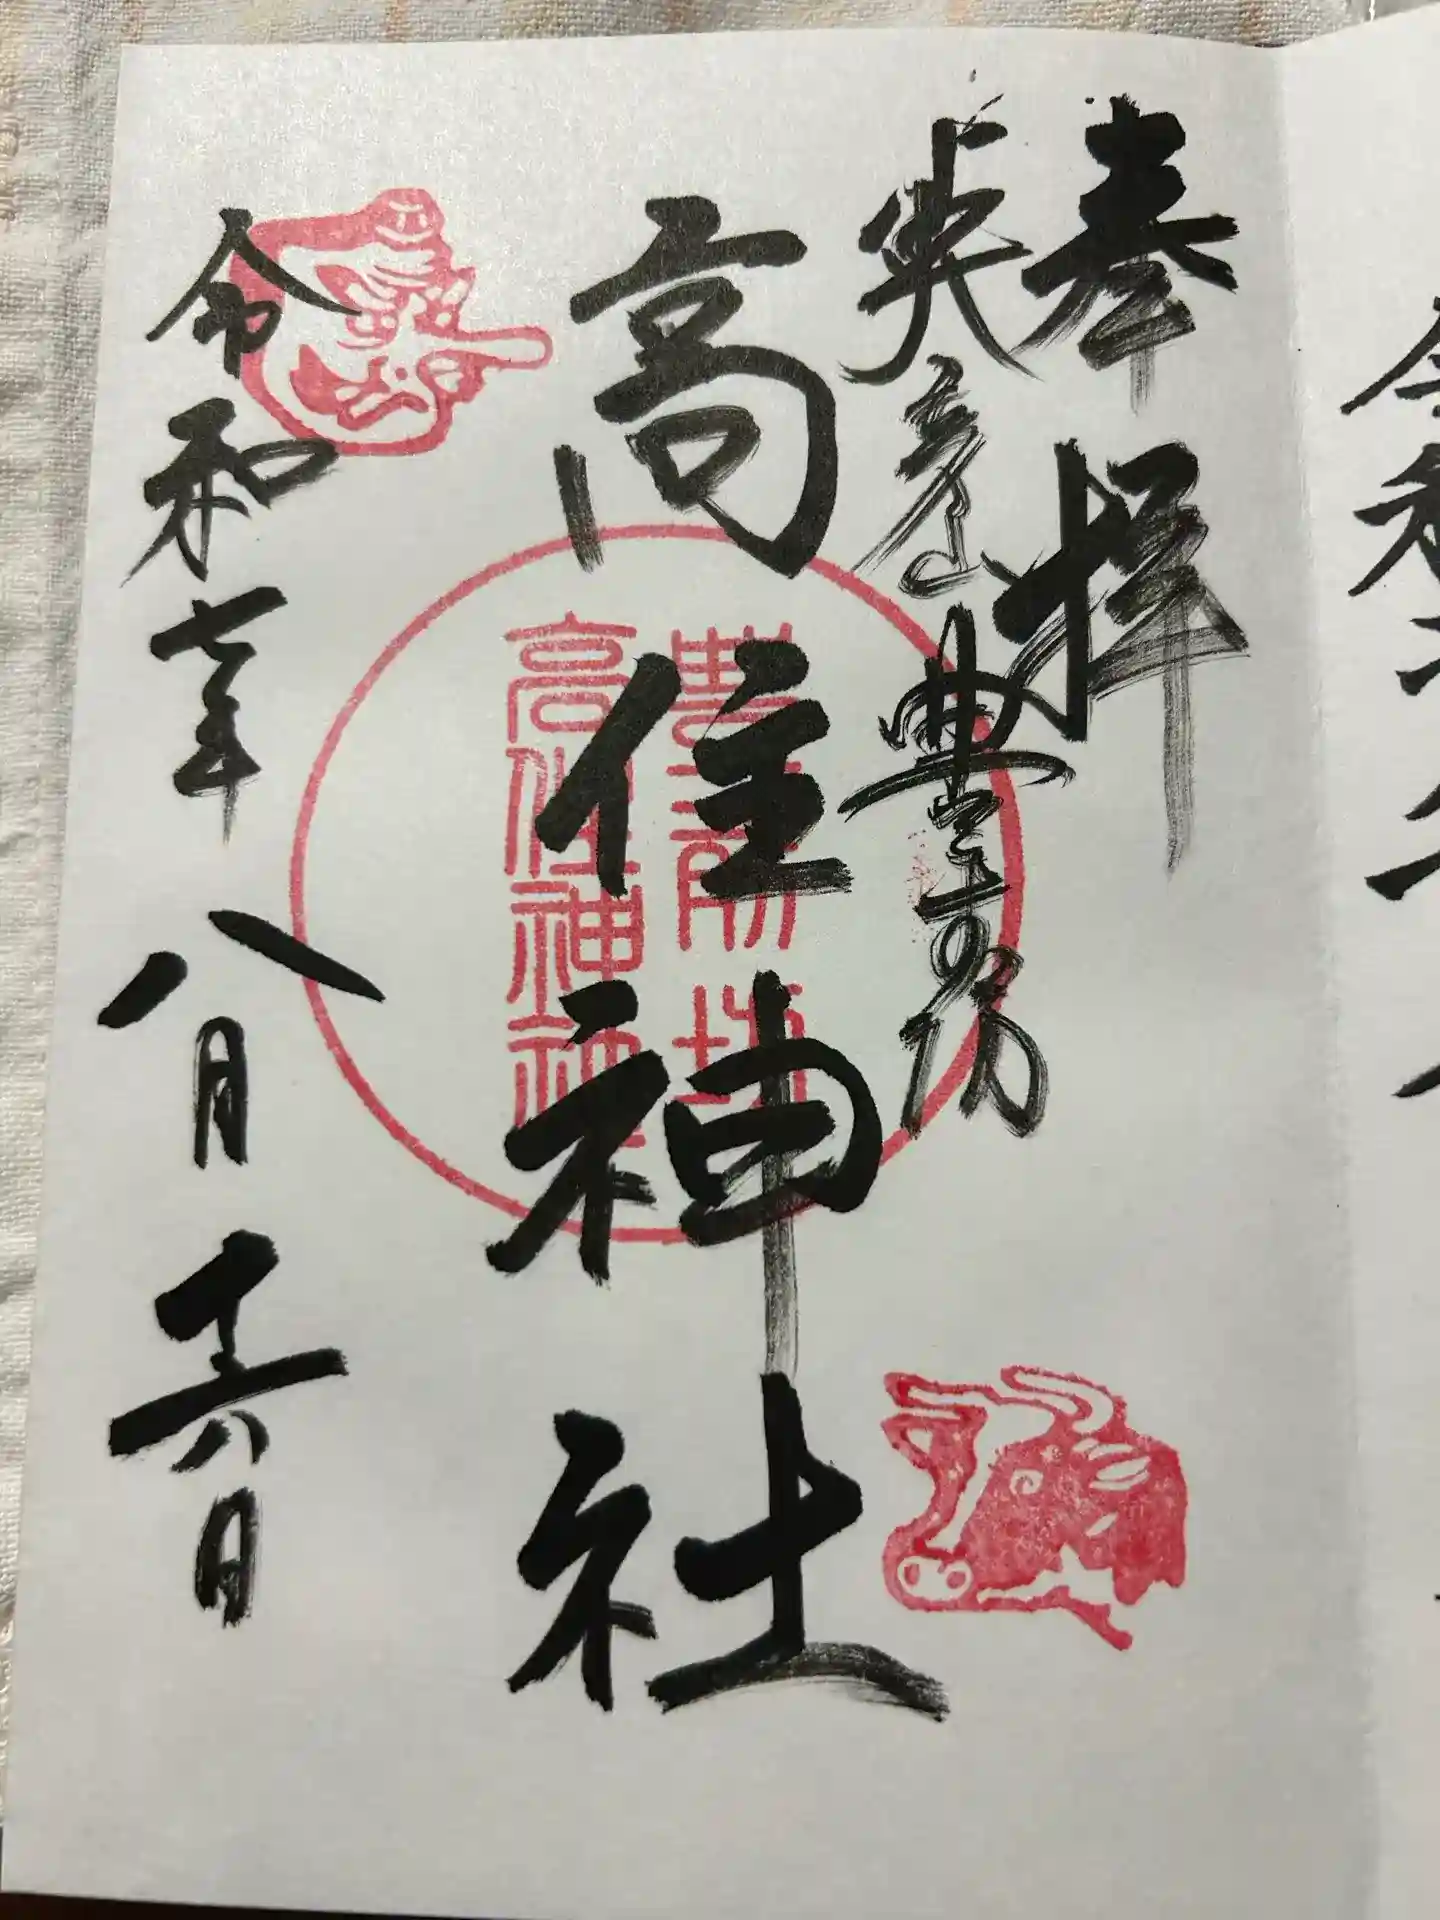 奉拝
英彦山豊前坊
高住神社
令和七年八月十六日
豊前坊
高住神社